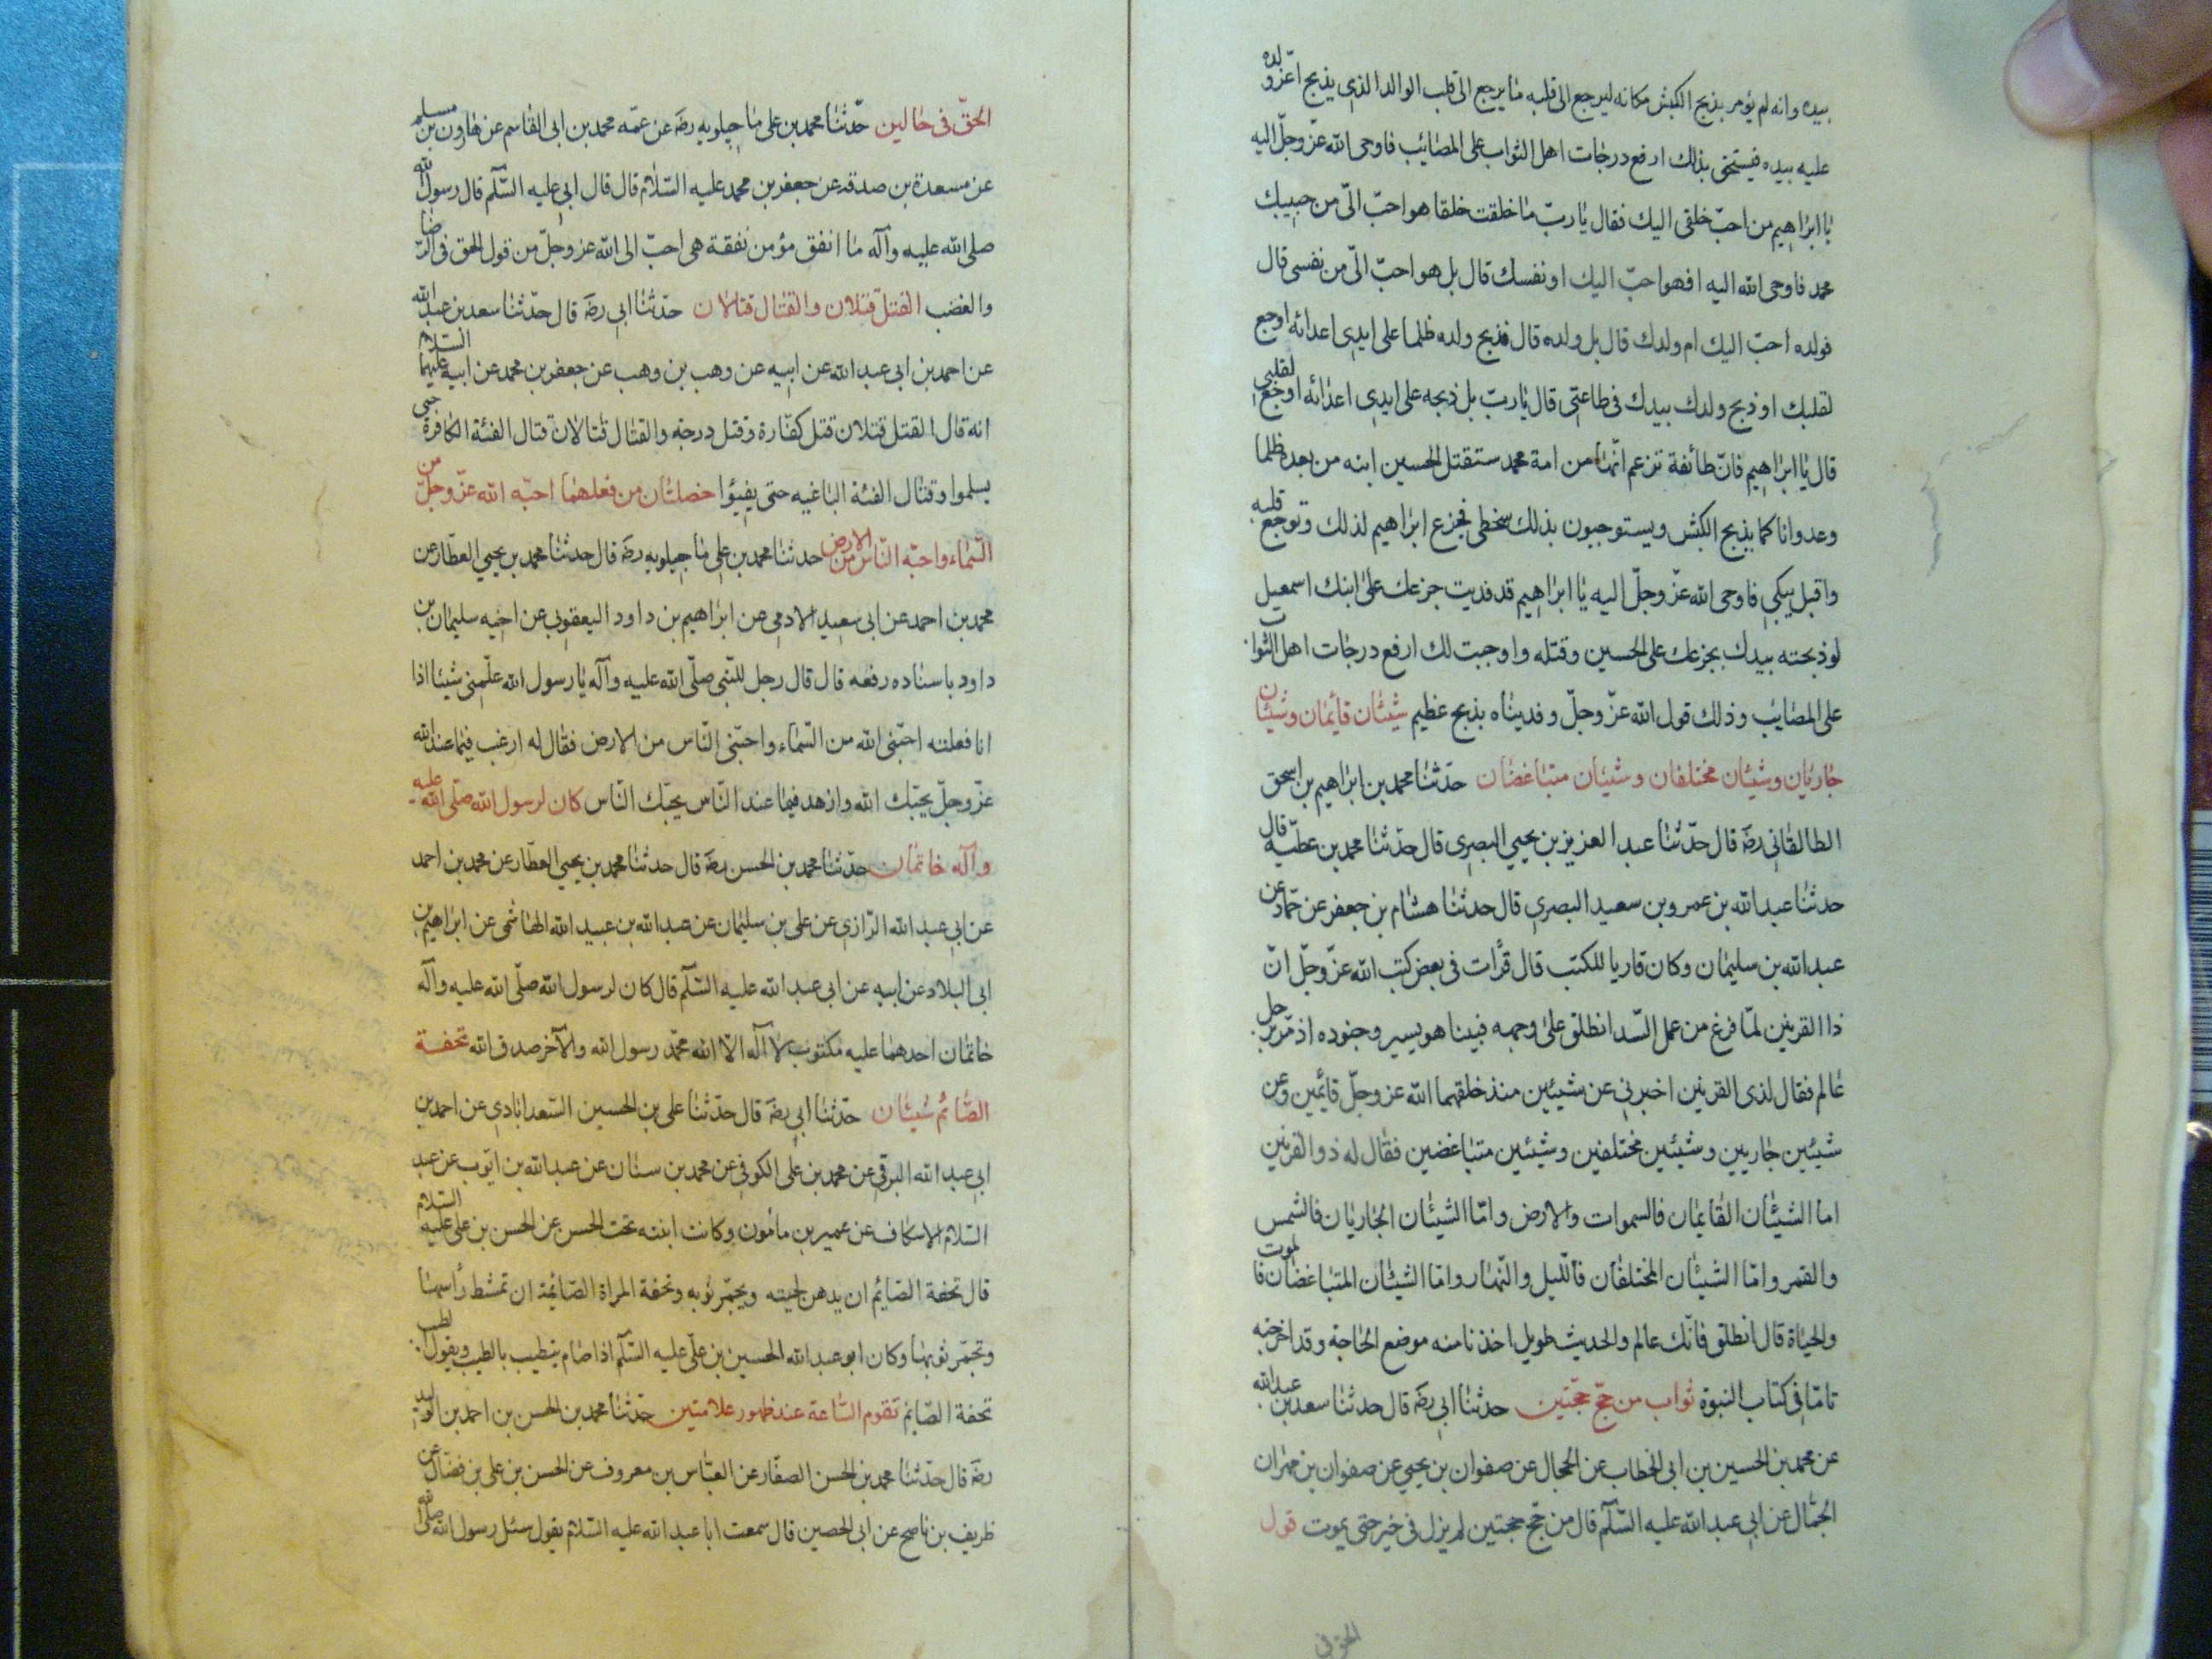 بيده وانه لم يؤمر بذبح الكبش مكانه ليرجع الى قلبه ما يرجع الى قلب الوالد الذى يذبح اعزّ ولده
عليه بيده فيستحق بذلك ارفع درجات اهل الثواب على المصائب فاوحى الله عزّ وجلّ اليه
يا ابراهيم من احبّ خلقى اليك فقال يا ربّ ما خلقت خلقا هو احبّ الىّ من حبيبك
محمد فاوحى الله اليه افهو احبّ اليك او نفسك قال بل هو احبّ الىّ من نفسى قال
فولده احبّ اليك ام ولدك قال بل ولده قال فذبح ولده ظلما على ايدى اعدائه اوجع
لقلبك او ذبح ولدك بيدك فى طاعتى قال يا ربّ بل ذبحه على ايدى اعدائه اوجع لقلبى
قال يا ابراهيم فانّ طائفة تزعم انّها من امة محمد ستقتل الحسين ابنه من بعده ظلما
وعدوانا كما يذبح الكبش ويستوجبون بذلك سخطى فجزع ابراهيم لذلك وتوجع قلبه
واقبل يبكى فاوحى الله عزّ وجلّ اليه يا ابراهيم قد فديت جزعك على ابنك اسمعيل
لو ذبحته بيدك بجزعك على الحسين وقتله واوجبت لك ارفع درجات اهل الثواب
على المصايب وذلك قول الله عزّ وجلّ وفديناه بذبح عظيم شيئان قائمان وشيئان
جاريان وشيئان مختلفان وشيئان متباغضان حدّثنا محمد بن ابراهيم بن اسحق
الطالقانى رضَ قال حدّثنا عبد العزيز بن يحيى البصرى قال حدّثنا محمد بن عطيّة قال
حدثنا عبد الله بن عمرو بن سعيد البصرى قال حدثنا هشام بن جعفر عن حمّاد عن
عبد الله بن سليمان وكان قاريا للكتب قال قرأت فى بعض كتب الله عزّ وجلّ انّ
ذا القرنين لمّا فرغ من عمل السّد انطلق على وجهه فبينا هو يسير وجنوده اذ مرّ برجل
عالم فقال لذى القرنين اخبرنى عن شيئين منذ خلقهما الله عز وجلّ قائمين وعن
شيئين جاريين وشيئين مختلفين وشيئين متباغضين فقال له ذو القرنين
اما الشيئان القايمان فالسموات والارض وامّا الشيئان الجاريان فالشمس
والقمر وامّا الشيئان المختلفان فاللّيل والنّهار وامّا الشيئان المتباغضان فالموت
والحياة قال انطلق فانّك عالم والحديث طويل اخذنا منه موضع الحاجة وقد اخرجته
تامّا فى كتاب النبوة ثواب من حجّ حجّتين حدثنا ابى رضَ قال حدثنا سعد بن عبد الله
عن محمد بن الحسين بن ابى الخطاب عن الحجال عن صفوان بن يحيى عن صفوان بن مهران
الجمّال عن ابى عبد الله عليه السّلم قال من حجّ حجتين لم يزل فى خير حتى يموت قول
الحق فى
الحقّ فى حالين حدّثنا محمد بن على ماجيلويه رضَ عن عمّه محمد بن ابى القاسم عن هارون بن مسلم
عن مسعدة بن صدقه عن جعفر بن محمد عليه السّلام قال قال ابى عليه السّلم قال رسول الله
صلى الله عليه وآله ما انفق مؤمن نفقة هى احبّ الى الله عز وجلّ من قول الحق فى الرّضا
والغضب القتل قتلان والقتال قتالان حدّثنا ابى رضَ قال حدّثنا سعد بن عبد الله
عن احمد بن ابى عبد الله عن ابيه عن وهب بن وهب عن جعفر بن محمد عن ابيه عليهما السلام
انه قال القتل قتلان قتل كفّارة وقتل درجة والقتال قتالان قتال الفئة الكافرة حتى
يسلموا وقتال الفئة الباغيه حتى يفيئوا خصلتان من فعلهما احبّه الله عزّ وجلّ من
السّماء واحبّه النّاس من الارض حدثنا محمد بن على ماجيلويه رضَ قال حدثنا محمد بن يحيى العطّار عن
محمد بن احمد عن ابى سعيد الادمى عن ابراهيم بن داود اليعقوبى عن اخيه سليمان بن
داود باسناده رفعه قال قال رجل للنّبى صلّى الله عليه وآله يا رسول الله علّمنى شيئا اذا
انا فعلته احبّنى الله من السّماء واحبّنى النّاس من الارض فقال له ارغب فيما عند الله
عزّ وجلّ يحبّك الله وازهد فيما عند النّاس يحبّك النّاس كان لرسول الله صلّى الله عليه
وآله خاتمان حدّثنا محمد بن الحسن رضَ قال حدثنا محمد بن يحيى العطّار عن محمد بن احمد
عن ابى عبد الله الرّازى عن على بن سليمان عن عبد الله بن عبيد الله الهاشمى عن ابراهيم بن
ابى البلاد عن ابيه عن ابى عبد الله عليه السّلم قال كان لرسول الله صلّى الله عليه وآله
خاتمان احدهما عليه مكتوب لا اله الا الله محمّد رسول الله والآخر صدق الله تحفة
الصّائم شيئان حدّثنا ابى رضَ قال حدّثنا على بن الحسين السّعدابادى عن احمد بن
ابى عبد الله البرقى عن محمد بن على الكوفى عن محمد بن سنان عن عبد الله بن ايّوب عن عبد
السّلام الاسكاف عن عمير بن مامون وكانت ابنته تحت الحسن عن الحسن بن على عليه السلام
قال تحفة الصّايم ان يدهن لحيته ويجمّر ثوبه وتحفة المراة الصّايمة ان تمشط رأسها
وتجمّر ثوبها وكان ابو عبد الله الحسين بن علىّ عليه السّلم اذا صام يتطيب بالطيب ويقول الطيب
تحفة الصّايم تقوم السّاعة عند ظهور علامتين حدّثنا محمد بن الحسن بن احمد بن الوليد
رضَ قال حدّثنا محمد بن الحسن الصفّار عن العبّاس بن معروف عن الحسن بن على بن فضّال عن
ظريف بن ناصح عن ابى الحصين قال سمعت ابا عبد الله عليه السّلام يقول سئل رسول الله صلى الله